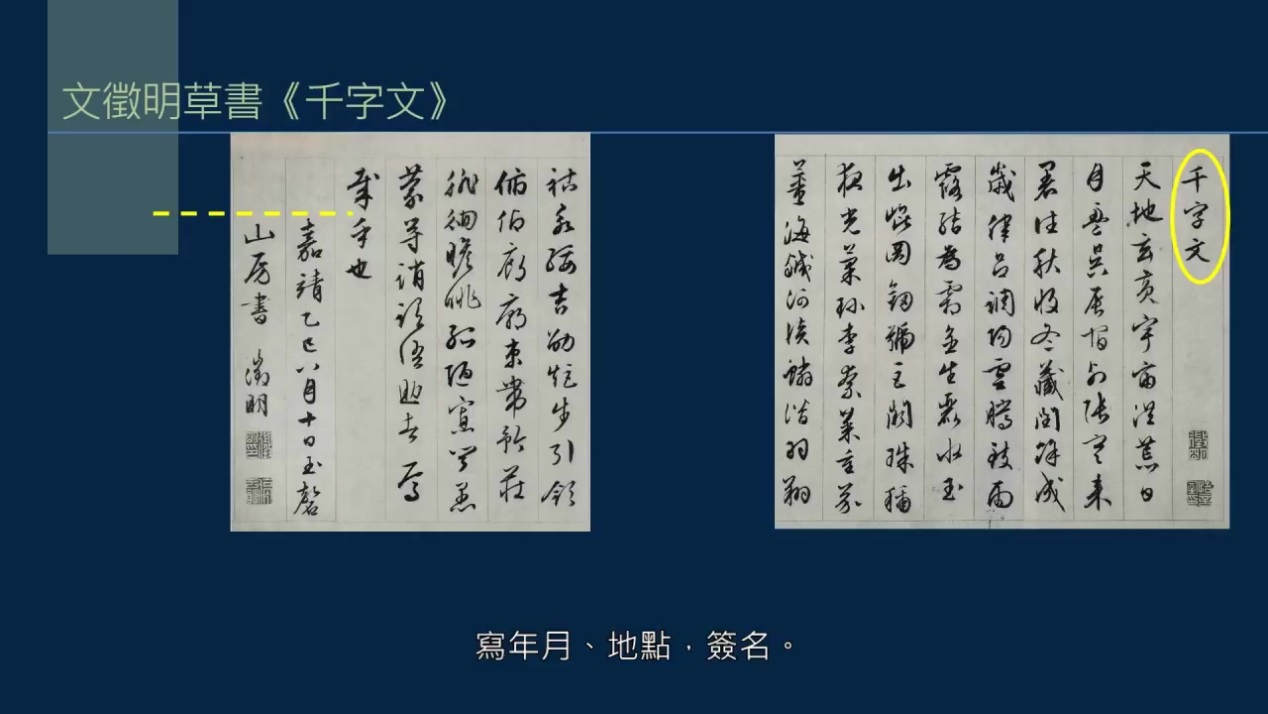 文徵明草書《千字文》
千字文
天地玄黃宇宙洪荒日
月盈昃辰宿列張寒來
暑往秋收冬藏閏餘成
歲律呂調陽雲騰致雨
露結為霜金生麗水玉
出崑岡劍號巨闕珠稱
夜光菓珍李柰菜重芥
薑海鹹河淡鱗潛羽翔
祜永綏吉劭矩步引領
俯仰廊廟束帶矜莊
徘徊瞻眺孤陋寡聞愚
蒙等誚謂語助者焉
哉乎也
嘉靖乙巳八月十日玉磬
山房書 徵明
寫年月、地點，簽名。